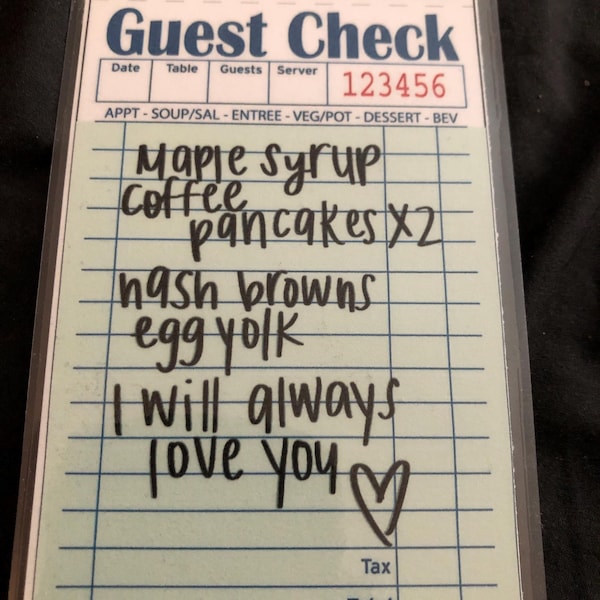 Guest Check
Date Table Guests Server 123456
APPT - SOUP/SAL - ENTREE - VEG/POT - DESSERT - BEV
Maple syrup
coffee
pancakes x2
hash browns
egg yolk
I will always
love you
Tax